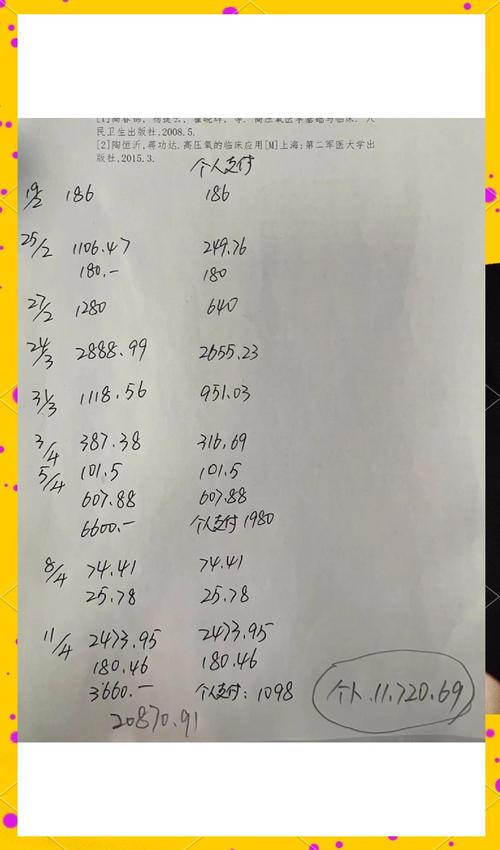 民卫生出版社,2008.5.
[2]陶恒沂,蒋功达.高压氧的临床应用[M]上海:第二军医大学出
版社,2015.3.
个人支付
19/2 186 186
25/2 1106.47 249.76
180.— 180
27/2 1280 640
24/3 2888.99 2655.23
31/3 1118.56 951.03
3/4 387.38 316.69
5/4 101.5 101.5
607.88 607.88
6600.— 个人支付1980
8/4 74.41 74.41
25.78 25.78
11/4 2473.95 2473.95
180.46 180.46
3660.— 个人支付:1098
20870.91
个人.11.720.69